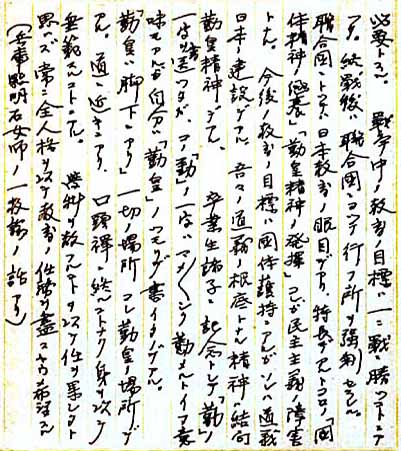 必要トスル。 戦争中ノ教育ノ目標ハ一ニ戦勝ツコトニ
アリ。終戦後ハ聯合国ニヨッテ行フ所ヲ強制セラル。
聯合国トシテハ日本教育ノ眼目デアリ、特長デアルトコロノ「国
体精神ノ極意」「勤皇精神ノ発揮」コレガ民主主義ノ障害
トナス。今後ノ教育ノ目標ハ国体護持コレガソレハ道義
日本ノ建設デアル。吾々ノ道義ノ根底トナル精神ハ結局
勤皇精神デアル。 卒業生諸子ニ記念トシテ「勤」ノ
一字ヲ送ッタガ、コノ「勤」ノ一字ハアメノシタ勤メルトイフ意
味モアルガ自分ハ「勤皇」ノツモリデ書イタノデアル。
「勤皇ハ脚下ニアリ」一切ノ場所コレ勤皇ノ場所デ
アル。道ハ近キニアリ、口頭禅ニ終ルコトナク身ヲ以テ
垂範スルコトデアル。 学科ヲ教フルコトヲ以テ仕事果レリト
思ハズ常ニ全人格ヲ以テ教育ノ仕事ヲ盡サレンコトヲ希望スル
(兵庫県明石女師ノ一教諭ノ話ヨリ)